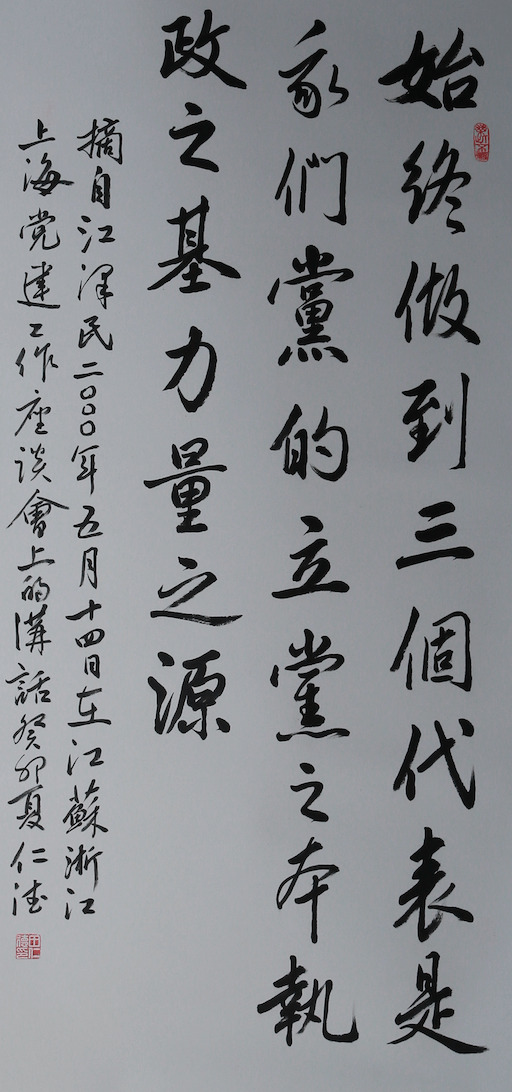 始終做到三個代表是
我們黨的立黨之本執
政之基力量之源
摘自江澤民二〇〇〇年五月十四日在江蘇浙江
上海党建工作座谈會上的講話癸卯夏仁德